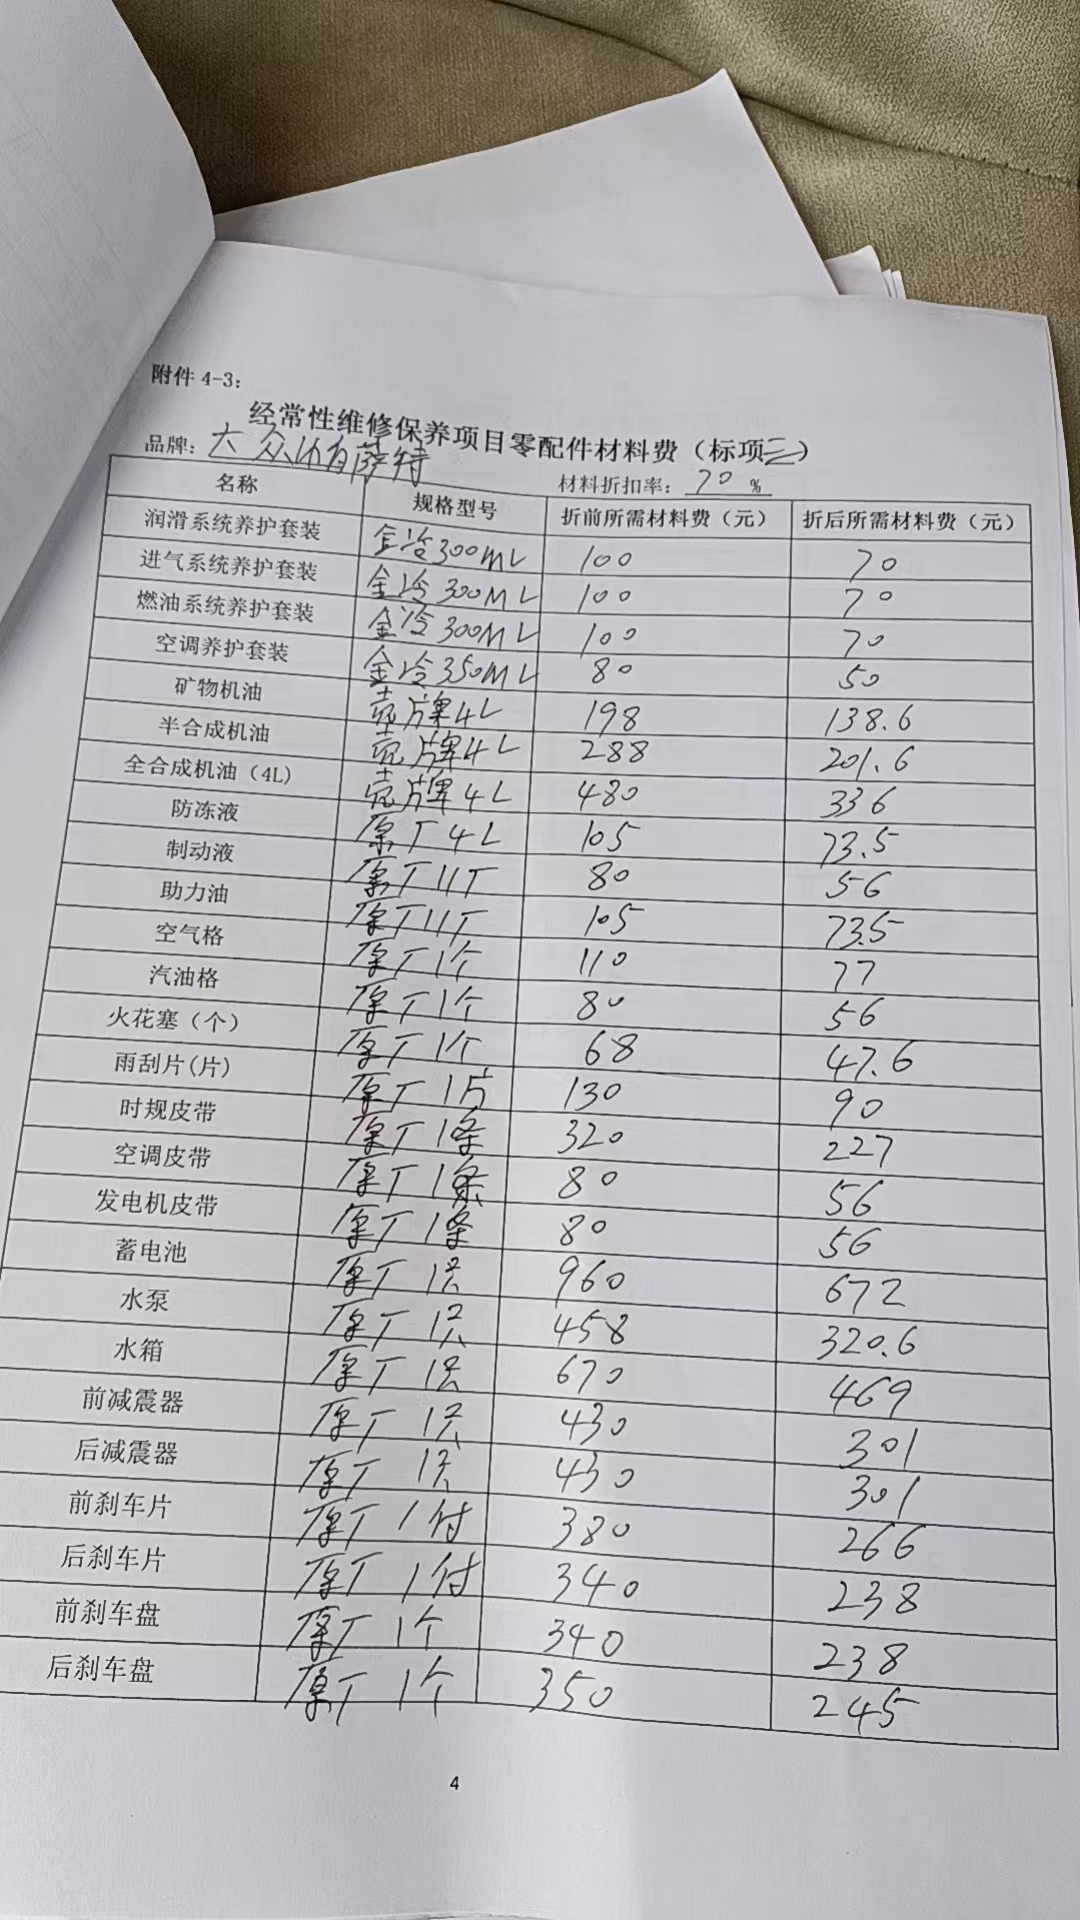 附件 4-3：
经常性维修保养项目零配件材料费（标项三）
品牌：大众帕萨特 材料折扣率：70 %
名称 规格型号 折前所需材料费（元） 折后所需材料费（元）
润滑系统养护套装 金冷300ML 100 70
进气系统养护套装 金冷300ML 100 70
燃油系统养护套装 金冷300ML 100 70
空调养护套装 金冷350ML 80 50
矿物机油 壳牌4L 198 138.6
半合成机油 壳牌4L 288 201.6
全合成机油（4L） 壳牌4L 480 336
防冻液 原厂4L 105 73.5
制动液 原厂 80 56
助力油 原厂 105 73.5
空气格 原厂1个 110 77
汽油格 原厂1个 80 56
火花塞（个） 原厂1个 68 47.6
雨刮片(片) 原厂1片 130 90
时规皮带 原厂1条 320 227
空调皮带 原厂1条 80 56
发电机皮带 原厂1条 80 56
蓄电池 原厂1只 960 672
水泵 原厂1只 458 320.6
水箱 原厂1只 670 469
前减震器 原厂1只 430 301
后减震器 原厂1只 430 301
前刹车片 原厂1付 380 266
后刹车片 原厂1付 340 238
前刹车盘 原厂1个 340 238
后刹车盘 原厂1个 350 245
4